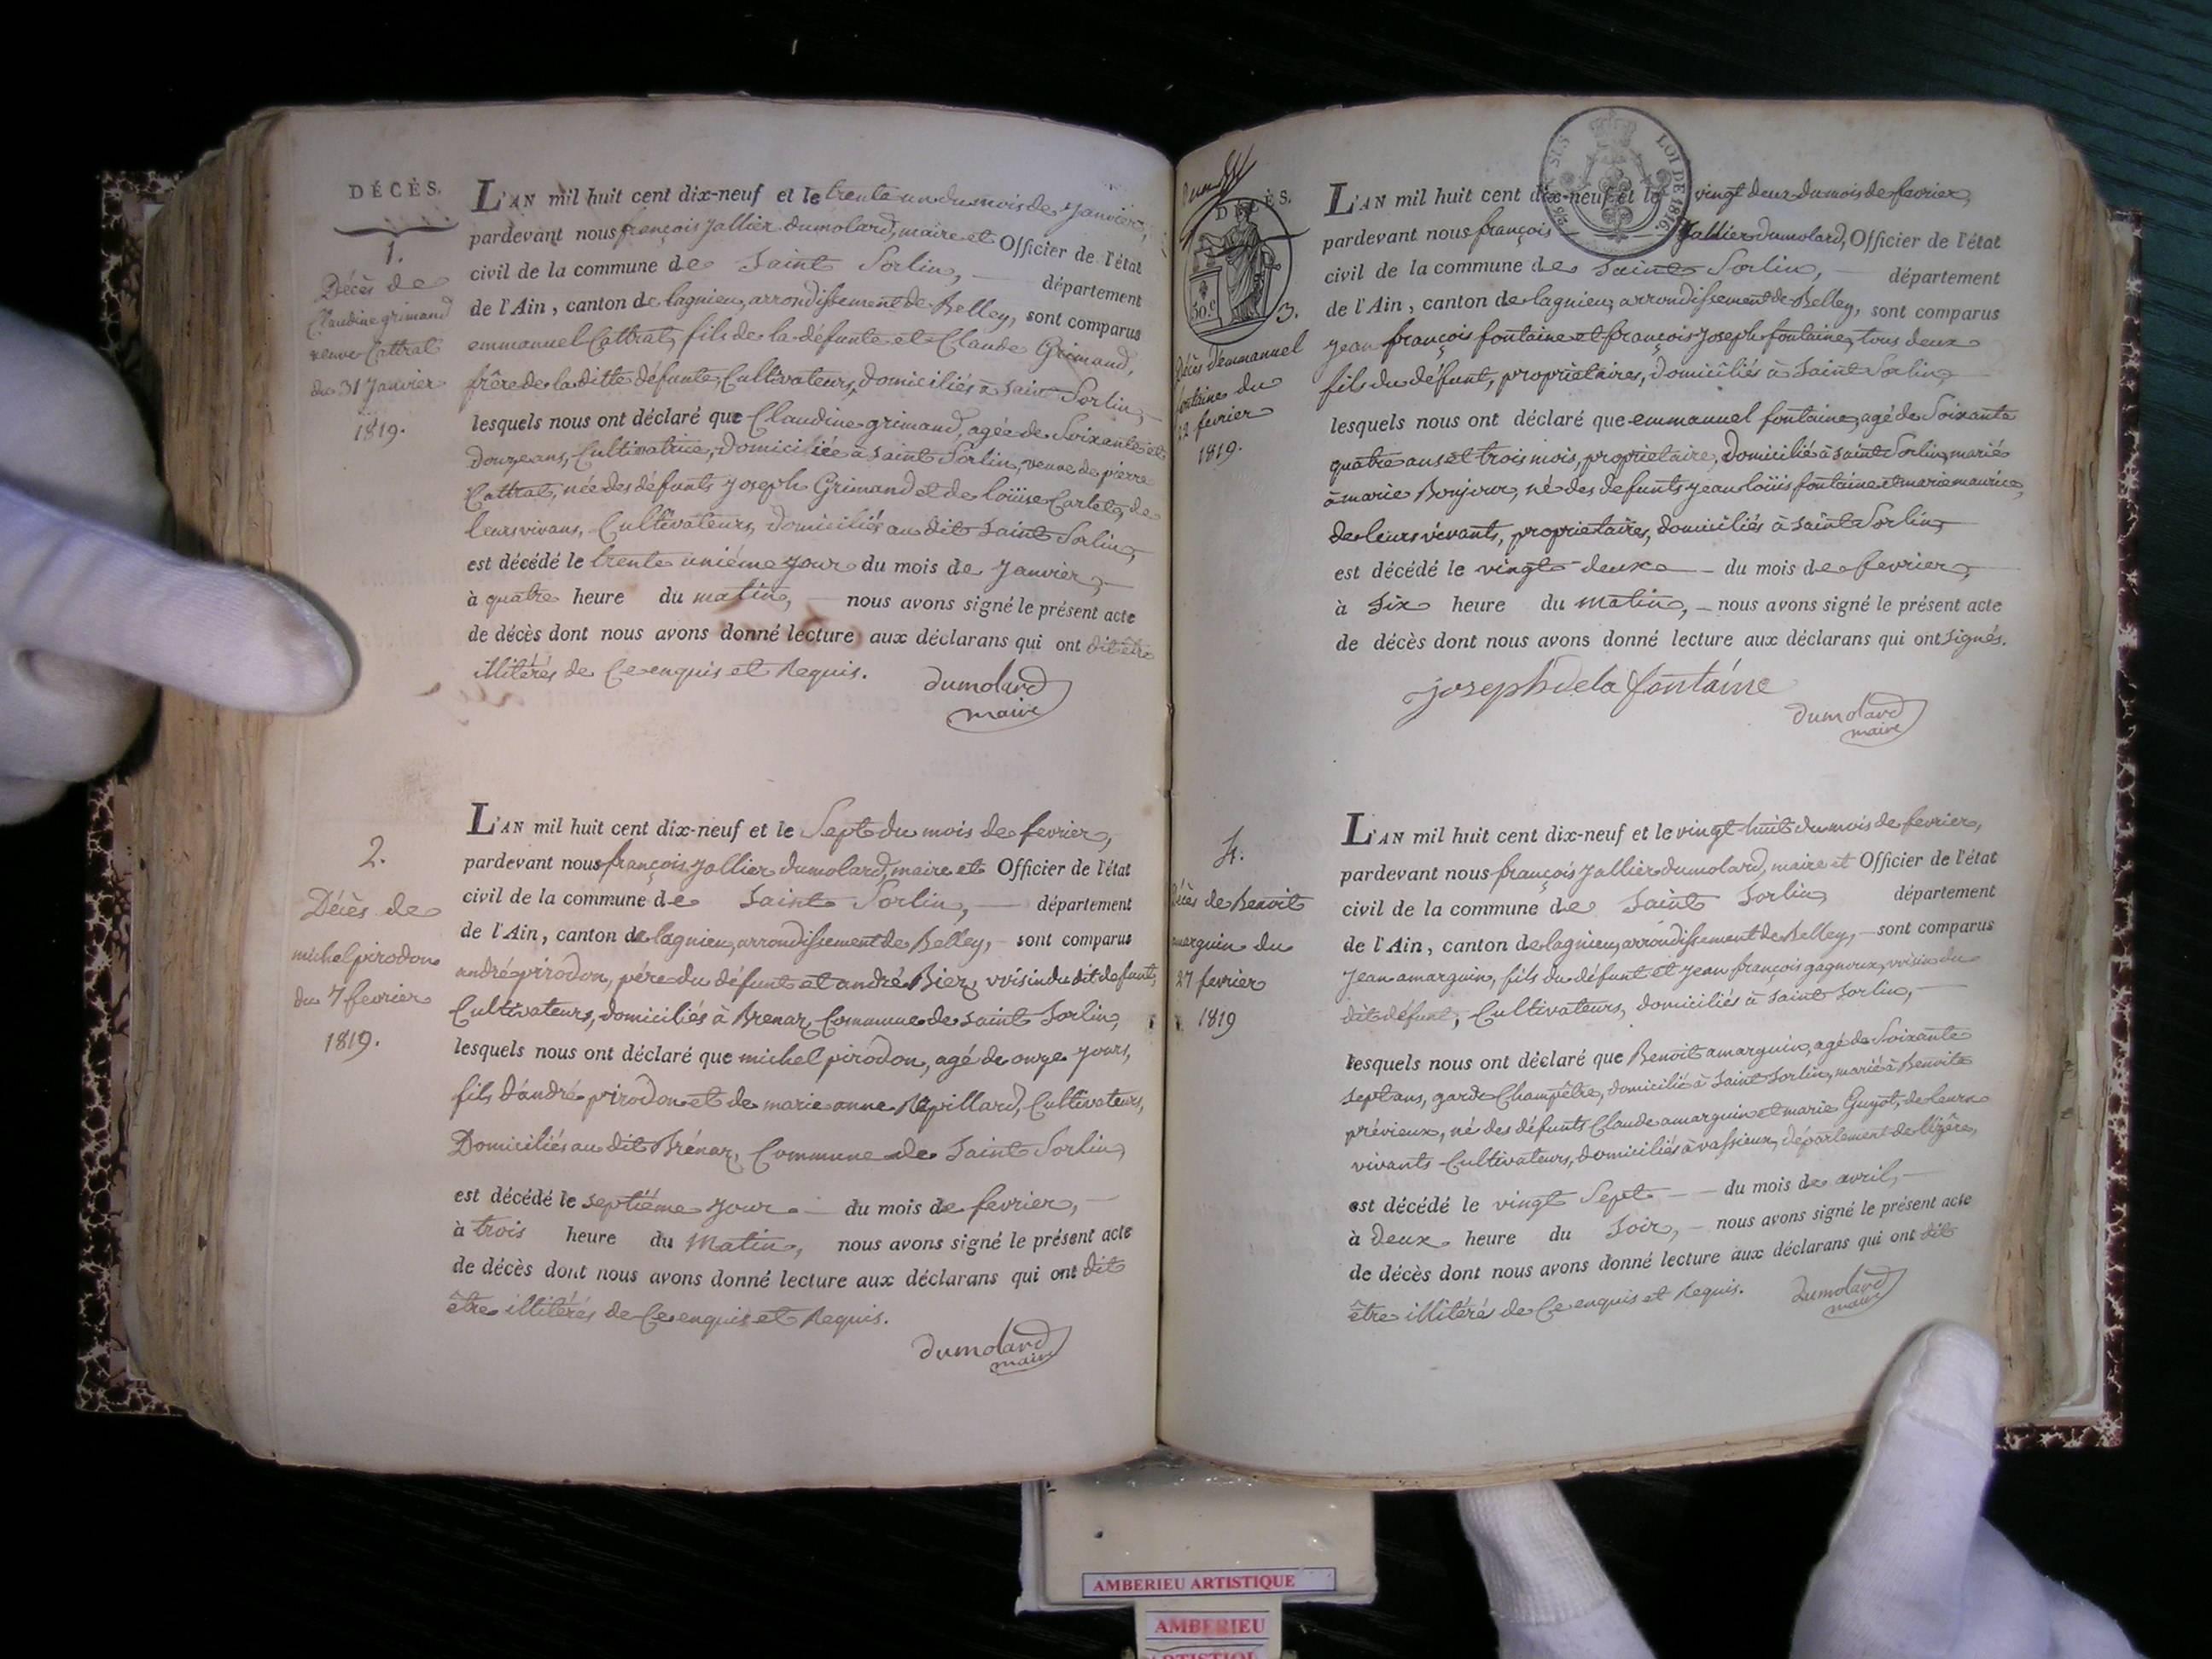 DÉCÈS.
1.
Décès de
Claudine grimand
veuve Cattrat
du 31 Janvier
1819.
L'AN mil huit cent dix-neuf et le trente un du mois de Janvier,
pardevant nous françois Jallier dumolard, maire et Officier de l'état
civil de la commune de Saint Sorlin, département
de l'Ain, canton de lagnieu, arrondissement de Belley, sont comparus
emmanuel Cattrat, fils de la défunte et Claude Grimand,
frère de la ditte défunte, Cultivateurs, domiciliés à Saint Sorlin,
lesquels nous ont déclaré que Claudine grimand, agée de Soixante et
douze ans, Cultivatrice, domiciliée à Saint Sorlin, veuve de pierre
Cattrat, née des défunts Joseph Grimand et de loüise Carlet, de
leurs vivans, Cultivateurs, domiciliés au dit Saint Sorlin,
est décédé le trente unième jour du mois de Janvier,
à quatre heure du matin, nous avons signé le présent acte
de décès dont nous avons donné lecture aux déclarans qui ont dit être
illitérés de Ce enquis et Requis.
dumolard
maire
2.
Décès de
michel pirodon
du 7 fevrier
1819.
L'AN mil huit cent dix-neuf et le Sept du mois de fevrier,
pardevant nous françois Jallier dumolard, maire et Officier de l'état
civil de la commune de Saint Sorlin, département
de l'Ain, canton de lagnieu, arrondissement de Belley, sont comparus
andré pirodon, père du défunt et andré Bier, voisin du dit defunt,
Cultivateurs, domiciliés à Brenaz, Commune de Saint Sorlin,
lesquels nous ont déclaré que michel pirodon, agé de onze jours,
fils d'andré pirodon et de marie anne Répillard, Cultivateurs,
Domiciliés au dit Brénaz, Commune de Saint Sorlin,
est décédé le septième jour du mois de fevrier,
à trois heure du Matin, nous avons signé le présent acte
de décès dont nous avons donné lecture aux déclarans qui ont dit
être illitérés de Ce enquis et Requis.
dumolard
maire
DÉCÈS.
50.c
3.
Décès d'emmanuel
fontaine du
22 fevrier
1819.
LOI DE 1816.
L'AN mil huit cent dix-neuf et le vingt deux du mois de fevrier,
pardevant nous françois Jallier dumolard, Officier de l'état
civil de la commune de Saint Sorlin, département
de l'Ain, canton de lagnieu, arrondissement de Belley, sont comparus
Jean françois fontaine et françois Joseph fontaine, tous deux
fils du défunt, propriétaires, domiciliés à Saint Sorlin,
lesquels nous ont déclaré que emmanuel fontaine, agé de Soixante
quatre ans et trois mois, propriétaire, domicilié à Saint Sorlin, marié
à marie Bonjour, né des defunts Jean loüis fontaine et marie maurice,
de leurs vivants, propriétaires, domiciliés à Saint Sorlin,
est décédé le vingt deux du mois de fevrier,
à Six heure du Matin, nous avons signé le présent acte
de décès dont nous avons donné lecture aux déclarans qui ont Signés.
joseph dela fontaine
dumolard
maire
4.
Décès de Benoit
amarguin du
27 fevrier
1819
L'AN mil huit cent dix-neuf et le vingt huit du mois de fevrier,
pardevant nous françois Jallier dumolard, maire et Officier de l'état
civil de la commune de Saint Sorlin, département
de l'Ain, canton de lagnieu, arrondissement de Belley, sont comparus
Jean amarguin, fils du défunt et Jean françois gagnoux, voisin du
dit défunt, Cultivateurs, domiciliés à Saint Sorlin,
lesquels nous ont déclaré que Benoit amarguin, agé de Soixante
Sept ans, garde Champêtre, domicilié à Saint Sorlin, marié à Benoite
prévieux, né des défunts Claude amarguin et marie Guyot, de leurs
vivants Cultivateurs, domiciliés à vassieux, département de l'izère,
est décédé le vingt Sept du mois de avril,
à Deux heure du Soir, nous avons signé le présent acte
de décès dont nous avons donné lecture aux déclarans qui ont dit
être illitérés de Ce enquis et Requis.
dumolard
maire
AMBERIEU ARTISTIQUE
AMBERIEU
ARTISTIQUE